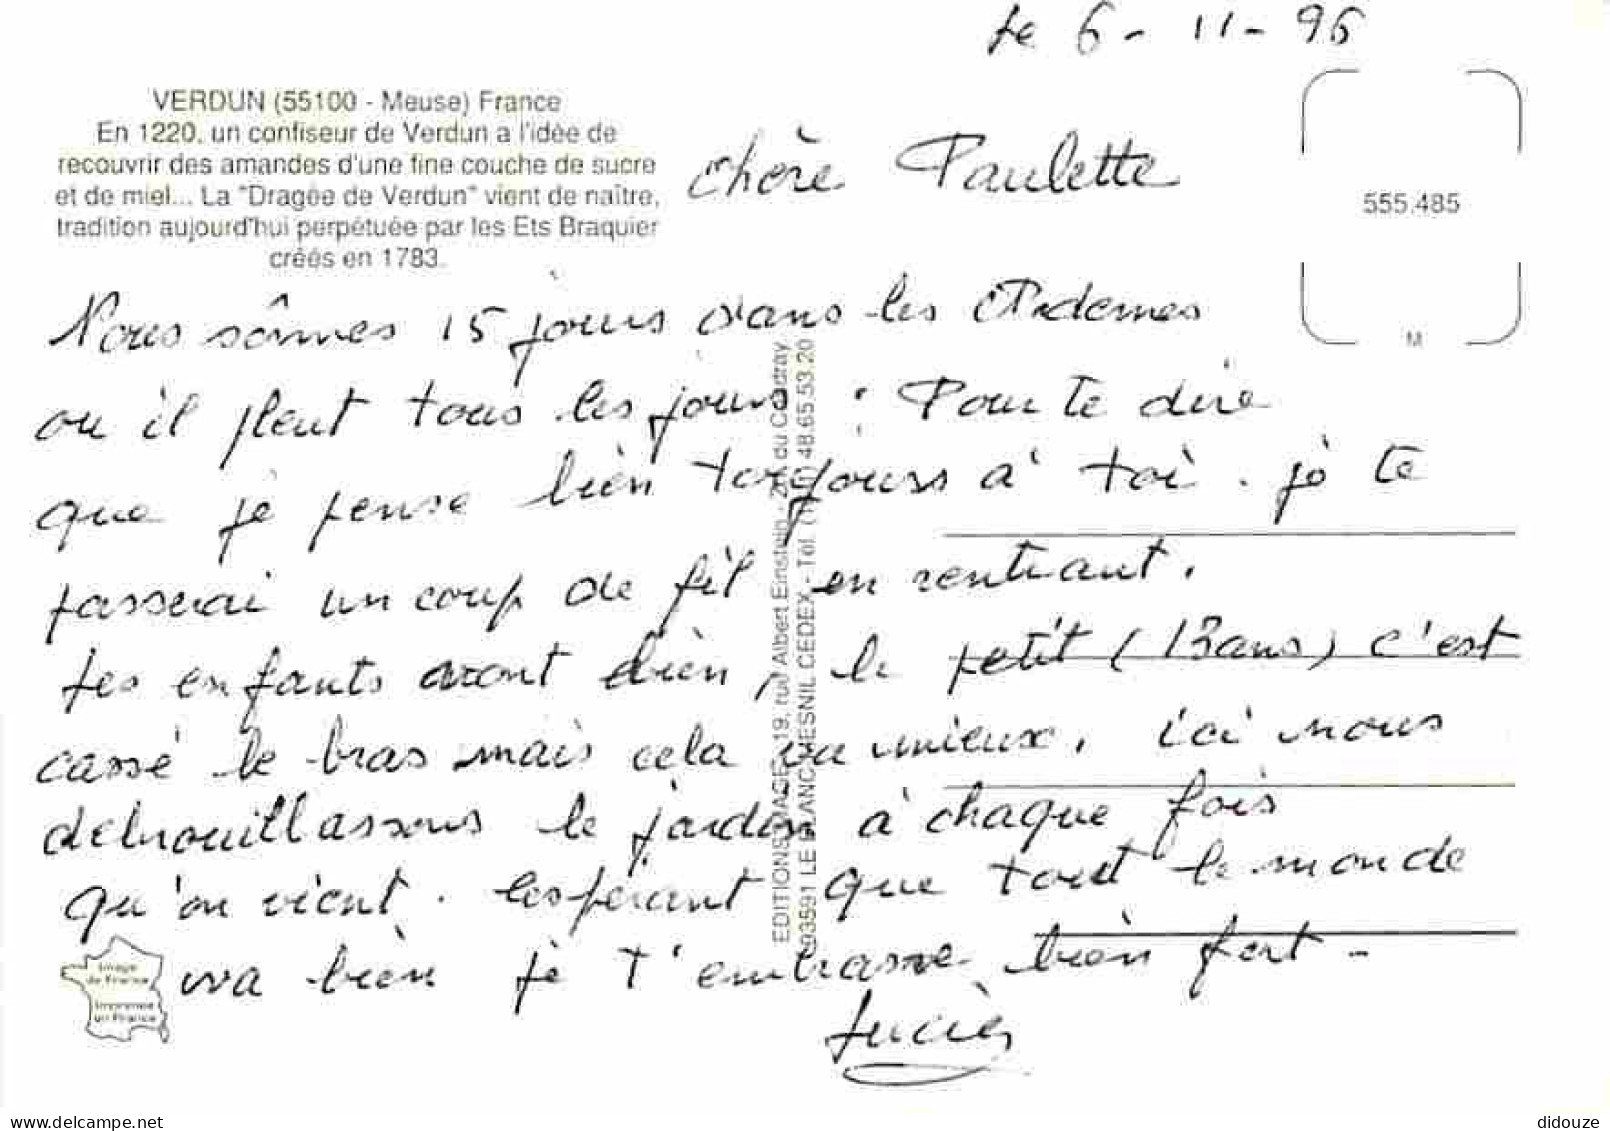 le 6-11-96
VERDUN (55100 - Meuse) France
En 1220, un confiseur de Verdun a l'idée de
recouvrir des amandes d'une fine couche de sucre
et de miel... La "Dragée de Verdun" vient de naître,
tradition aujourd'hui perpétuée par les Ets Braquier
créés en 1783.
555.485
M
chère Paulette
Nous sômmes 15 jours dans les Ardennes
ou il pleut tous les jours : Pour te dire
que je pense bien toujours à toi. je te
passerai un coup de fil en rentrant.
les enfants vont bien, le petit (13 ans) c'est
cassé le bras mais cela va mieux. ici nous
debrouillassons le jardin à chaque fois
qu'on vient. espérant que tout le monde
va bien je t'embrasse bien fort -
EDITIONS IMAGE - 19, rue Albert Einstein - du Coudray
93591 LE BLANC MESNIL CEDEX - Tél. (1) 48.65.53.20
Image
de France
Imprimée
en France
didouze